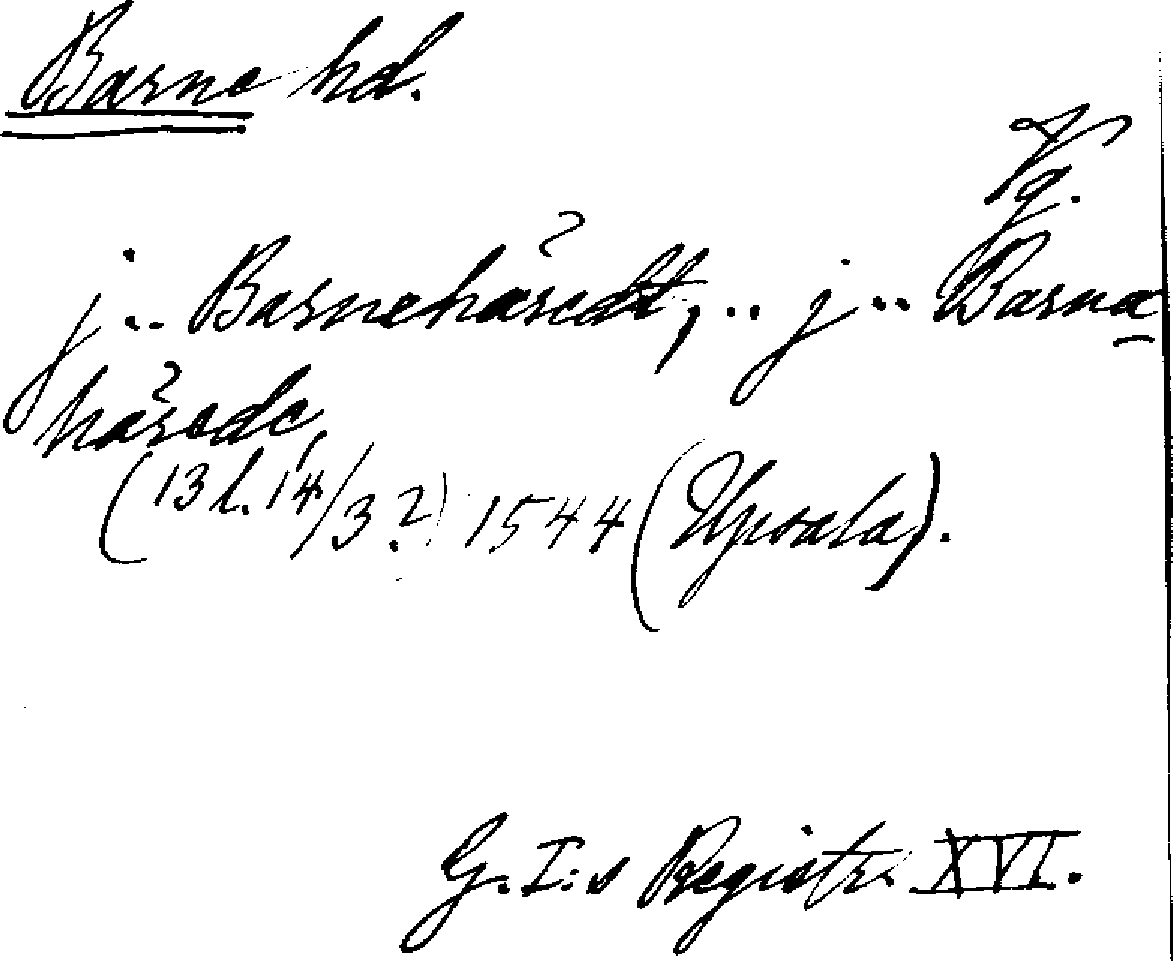 Barne hd.
Vg.
j .. Barnehäredt, .. j .. Barna
härede,
(13 l. 14/3 ?) 1544 (Upsala).
G. I:s Registr. XVI.